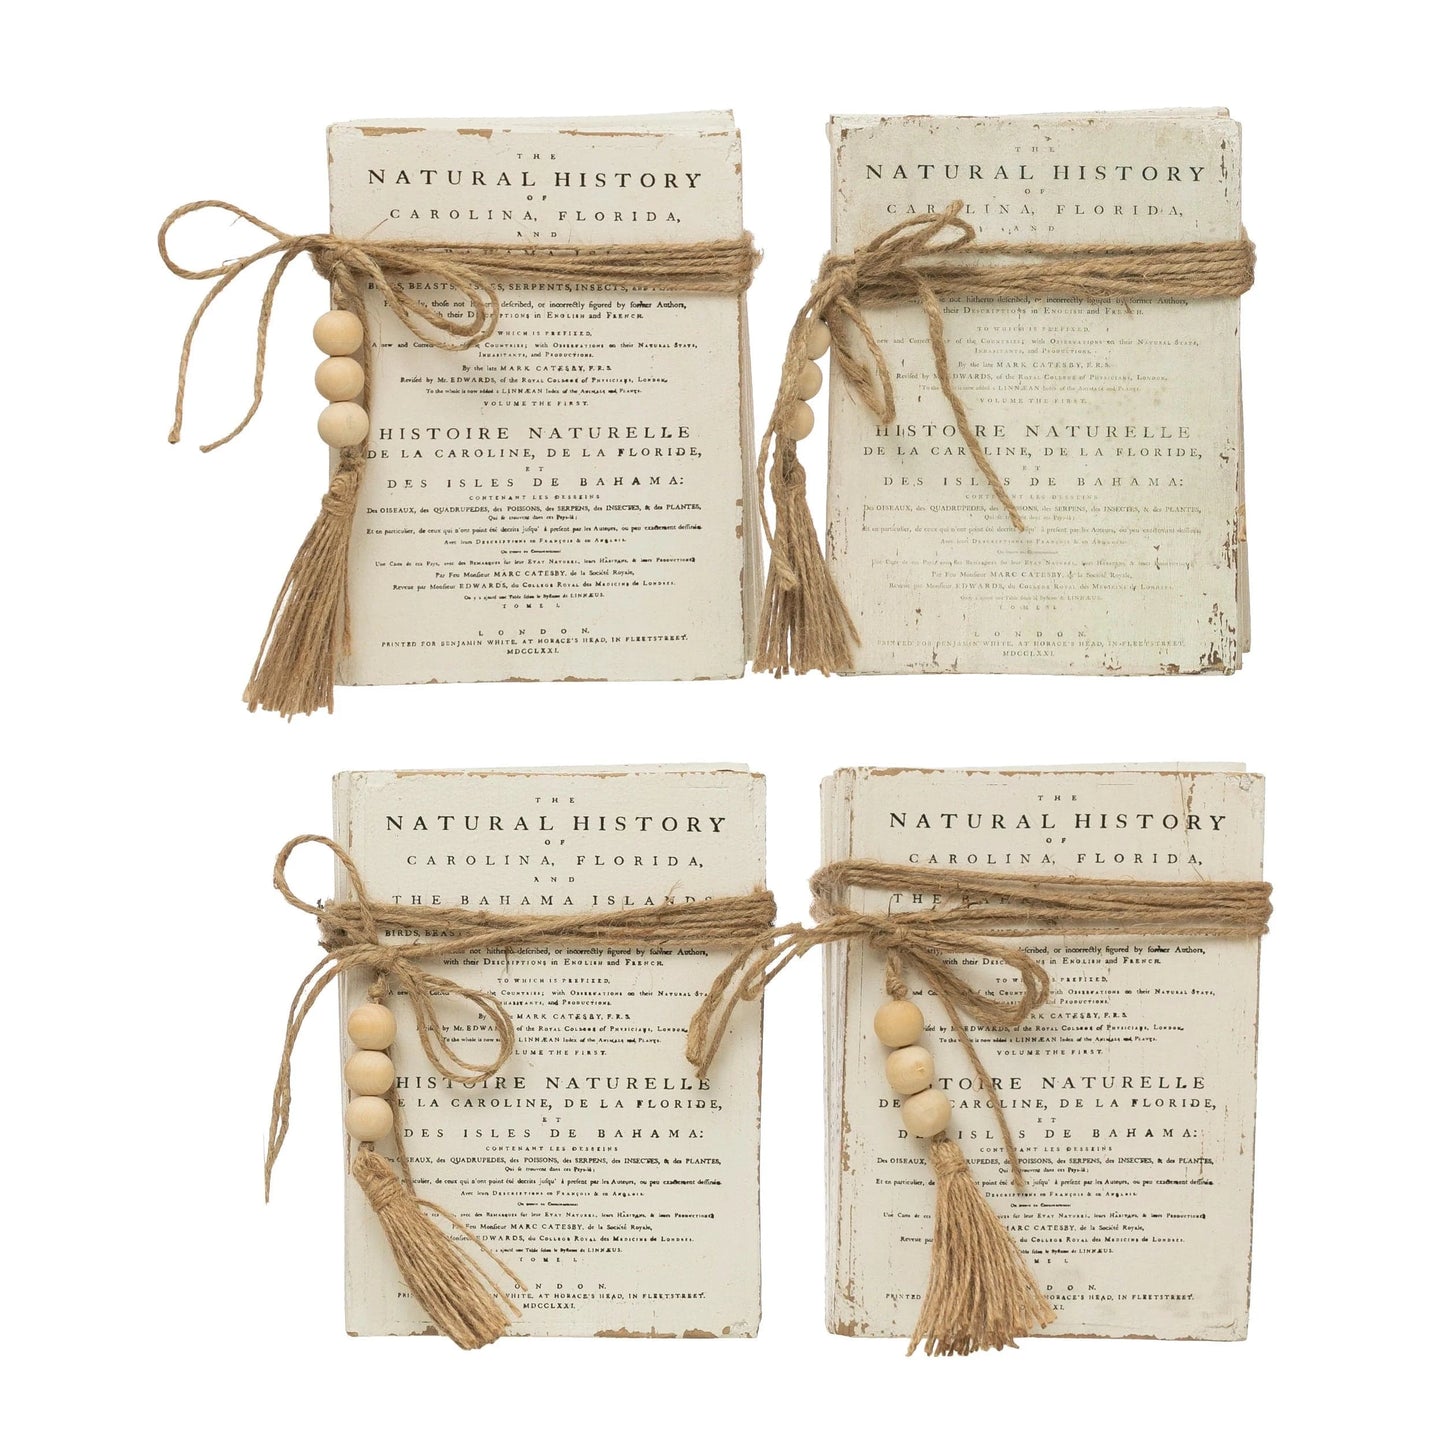 THE
NATURAL HISTORY
OF
CAROLINA, FLORIDA,
AND
those not hitherto described, or incorrectly figured by former Authors,
with their Descriptions in English and French.
TO WHICH IS PREFIXED,
A new and Correct of the Countries; with Observations on their Natural State,
Inhabitants, and Productions.
By the late MARK CATESBY, F.R.S.
Revised by Mr. EDWARDS, of the Royal College of Physicians, London.
To the whole is now added a LINNÆAN Index of the Animals and Plants.
VOLUME THE FIRST.
HISTOIRE NATURELLE
DE LA CAROLINE, DE LA FLORIDE,
ET
DES ISLES DE BAHAMA:
CONTENANT LES DESSEINS
Des OISEAUX, des QUADRUPEDES, des POISSONS, des SERPENS, des INSECTES, & des PLANTES,
Qui se trouvent dans ces Pays-là;
Et en particulier, de ceux qui n'ont point été decrits jusqu' à present par les Auteurs, ou peu exactement dessinés.
Avec leurs Descriptions en François & en Anglois.
Par Feu Monsieur MARC CATESBY, de la Société Royale,
Revue par Monsieur EDWARDS, du College Royal des Medicins de Londres.
TOME I.
LONDON.
PRINTED FOR BENJAMIN WHITE, AT HORACE'S HEAD, IN FLEETSTREET.
MDCCLXXI.
THE
NATURAL HISTORY
OF
CAROLINA, FLORIDA,
AND
not hitherto described, or incorrectly figured by former Authors,
their Descriptions in English and French.
TO WHICH IS PREFIXED,
new and Correct of the Countries; with Observations on their Natural State,
Inhabitants, and Productions.
By the late MARK CATESBY, F.R.S.
Revised by Mr. EDWARDS, of the Royal College of Physicians, London.
To the whole is now added a LINNÆAN Index of the Animals and Plants.
VOLUME THE FIRST.
HISTOIRE NATURELLE
DE LA CAROLINE, DE LA FLORIDE,
ET
DES ISLES DE BAHAMA:
CONTENANT LES DESSEINS
Des OISEAUX, des QUADRUPEDES, des POISSONS, des SERPENS, des INSECTES, & des PLANTES,
Qui se trouvent dans ces Pays-là;
Et en particulier, de ceux qui n'ont point été decrits jusqu' à present par les Auteurs, ou peu exactement dessinés.
Avec leurs Descriptions en François & en Anglois.
Par Feu Monsieur MARC CATESBY, de la Société Royale,
Revue par Monsieur EDWARDS, du College Royal des Medicins de Londres.
TOME I.
LONDON.
PRINTED FOR BENJAMIN WHITE, AT HORACE'S HEAD, IN FLEETSTREET.
MDCCLXXI.
THE
NATURAL HISTORY
OF
CAROLINA, FLORIDA,
AND
THE BAHAMA ISLANDS
BIRDS,
not hitherto described, or incorrectly figured by former Authors,
with their Descriptions in English and French.
TO WHICH IS PREFIXED,
A new Countries; with Observations on their Natural
and Productions.
By MARK CATESBY, F.R.S.
by Mr. of the Royal College of Physicians, London.
To the whole is now LINNÆAN Index of the Animals and Plants.
THE FIRST.
HISTOIRE NATURELLE
LA CAROLINE, DE LA FLORIDE,
ET
DES ISLES DE BAHAMA:
CONTENANT LES DESSEINS
des QUADRUPEDES, des POISSONS, des SERPENS, des INSECTES, & des PLANTES,
Qui se trouvent dans ces Pays-là;
de ceux qui n'ont point été decrits jusqu' à present par les Auteurs, ou peu exactement dessinés.
Avec leurs Descriptions en François & en Anglois.
Feu Monsieur MARC CATESBY, de la Société Royale,
Monsieur EDWARDS, du College Royal des Medicins de Londres.
TOME I.
WHITE, AT HORACE'S HEAD, IN FLEETSTREET.
MDCCLXXI.
THE
NATURAL HISTORY
OF
CAROLINA, FLORIDA,
THE
described, or incorrectly figured by former Authors,
with their in English and French.
TO WHICH IS PREFIXED,
with Observations on their Natural State,
and Productions.
CATESBY, F.R.S.
by Mr. of the Royal College of Physicians, London.
To the whole is now added a LINNÆAN Index of the Animals and Plants.
VOLUME THE FIRST.
NATURELLE
CAROLINE, DE LA FLORIDE,
ET
ISLES DE BAHAMA:
CONTENANT LES DESSEINS
Des OISEAUX, des POISSONS, des SERPENS, des INSECTES, & des PLANTES,
trouvent dans ces Pays-là;
Et en particulier, de point été decrits jusqu' à present par les Auteurs, ou peu exactement dessinés.
Descriptions en François & en Anglois.
CATESBY, de la Société Royale,
Revue par du College Royal des Medicins de Londres.
PRINTED AT HORACE'S HEAD, IN FLEETSTREET.